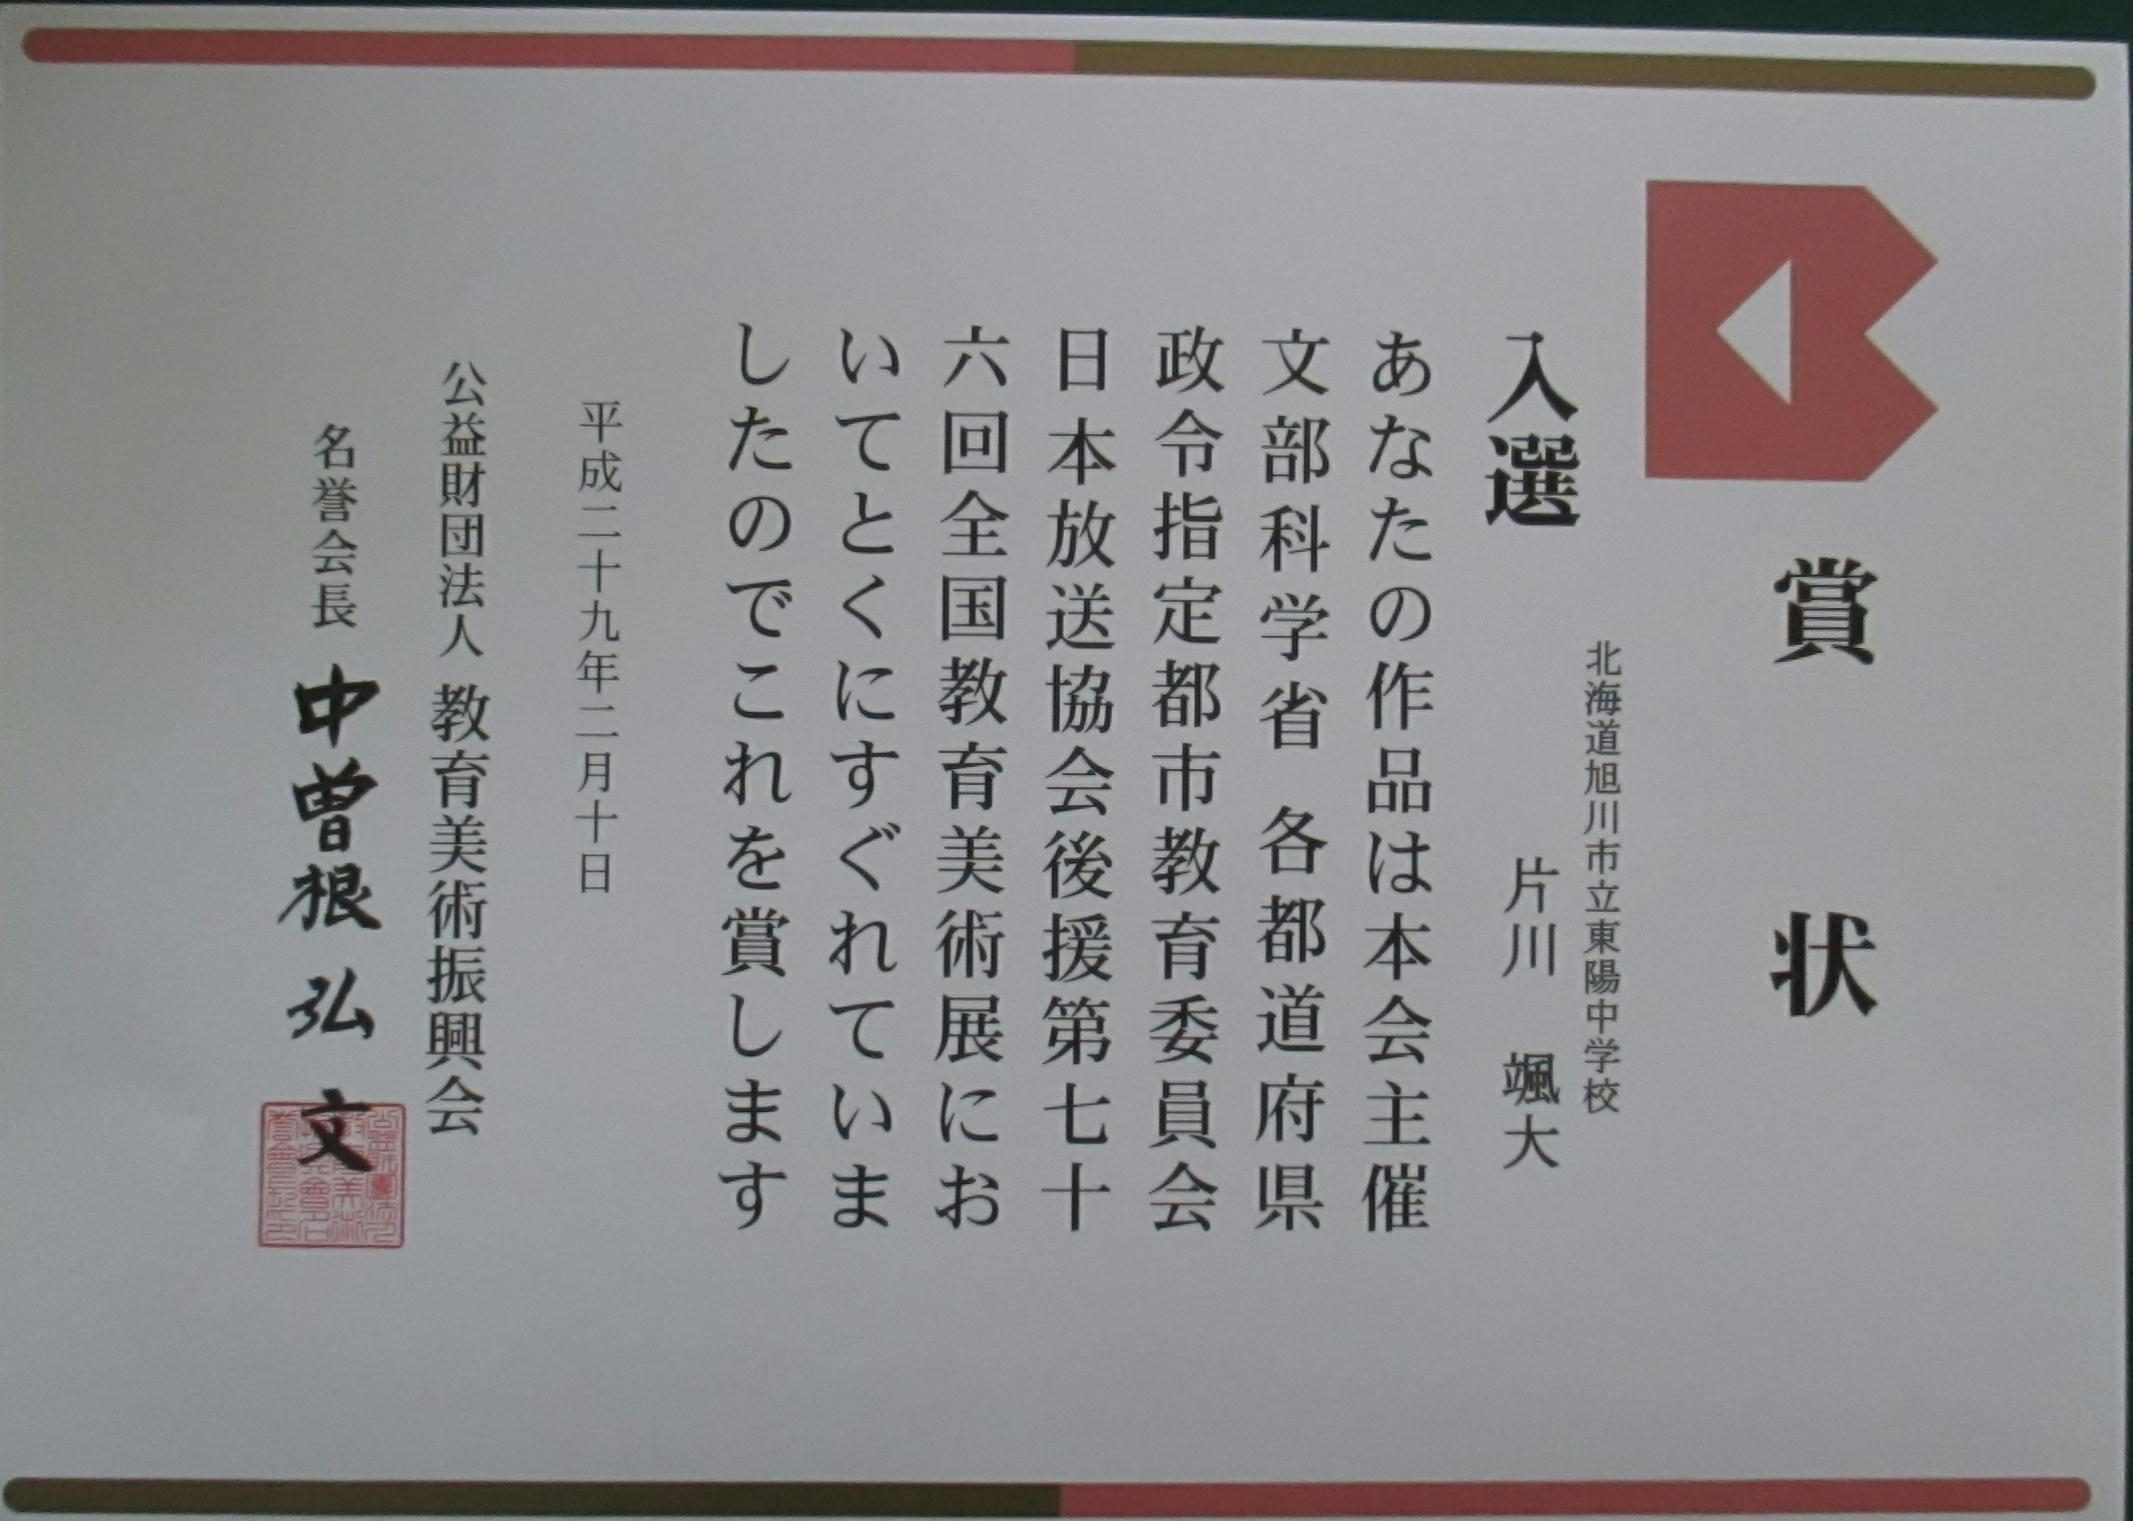 賞状
北海道旭川市立東陽中学校
入選 片川 颯大
あなたの作品は本会主催
文部科学省 各都道府県
政令指定都市教育委員会
日本放送協会後援第七十
六回全国教育美術展にお
いてとくにすぐれていま
したのでこれを賞します
平成二十九年二月十日
公益財団法人 教育美術振興会
名誉会長 中曽根弘文